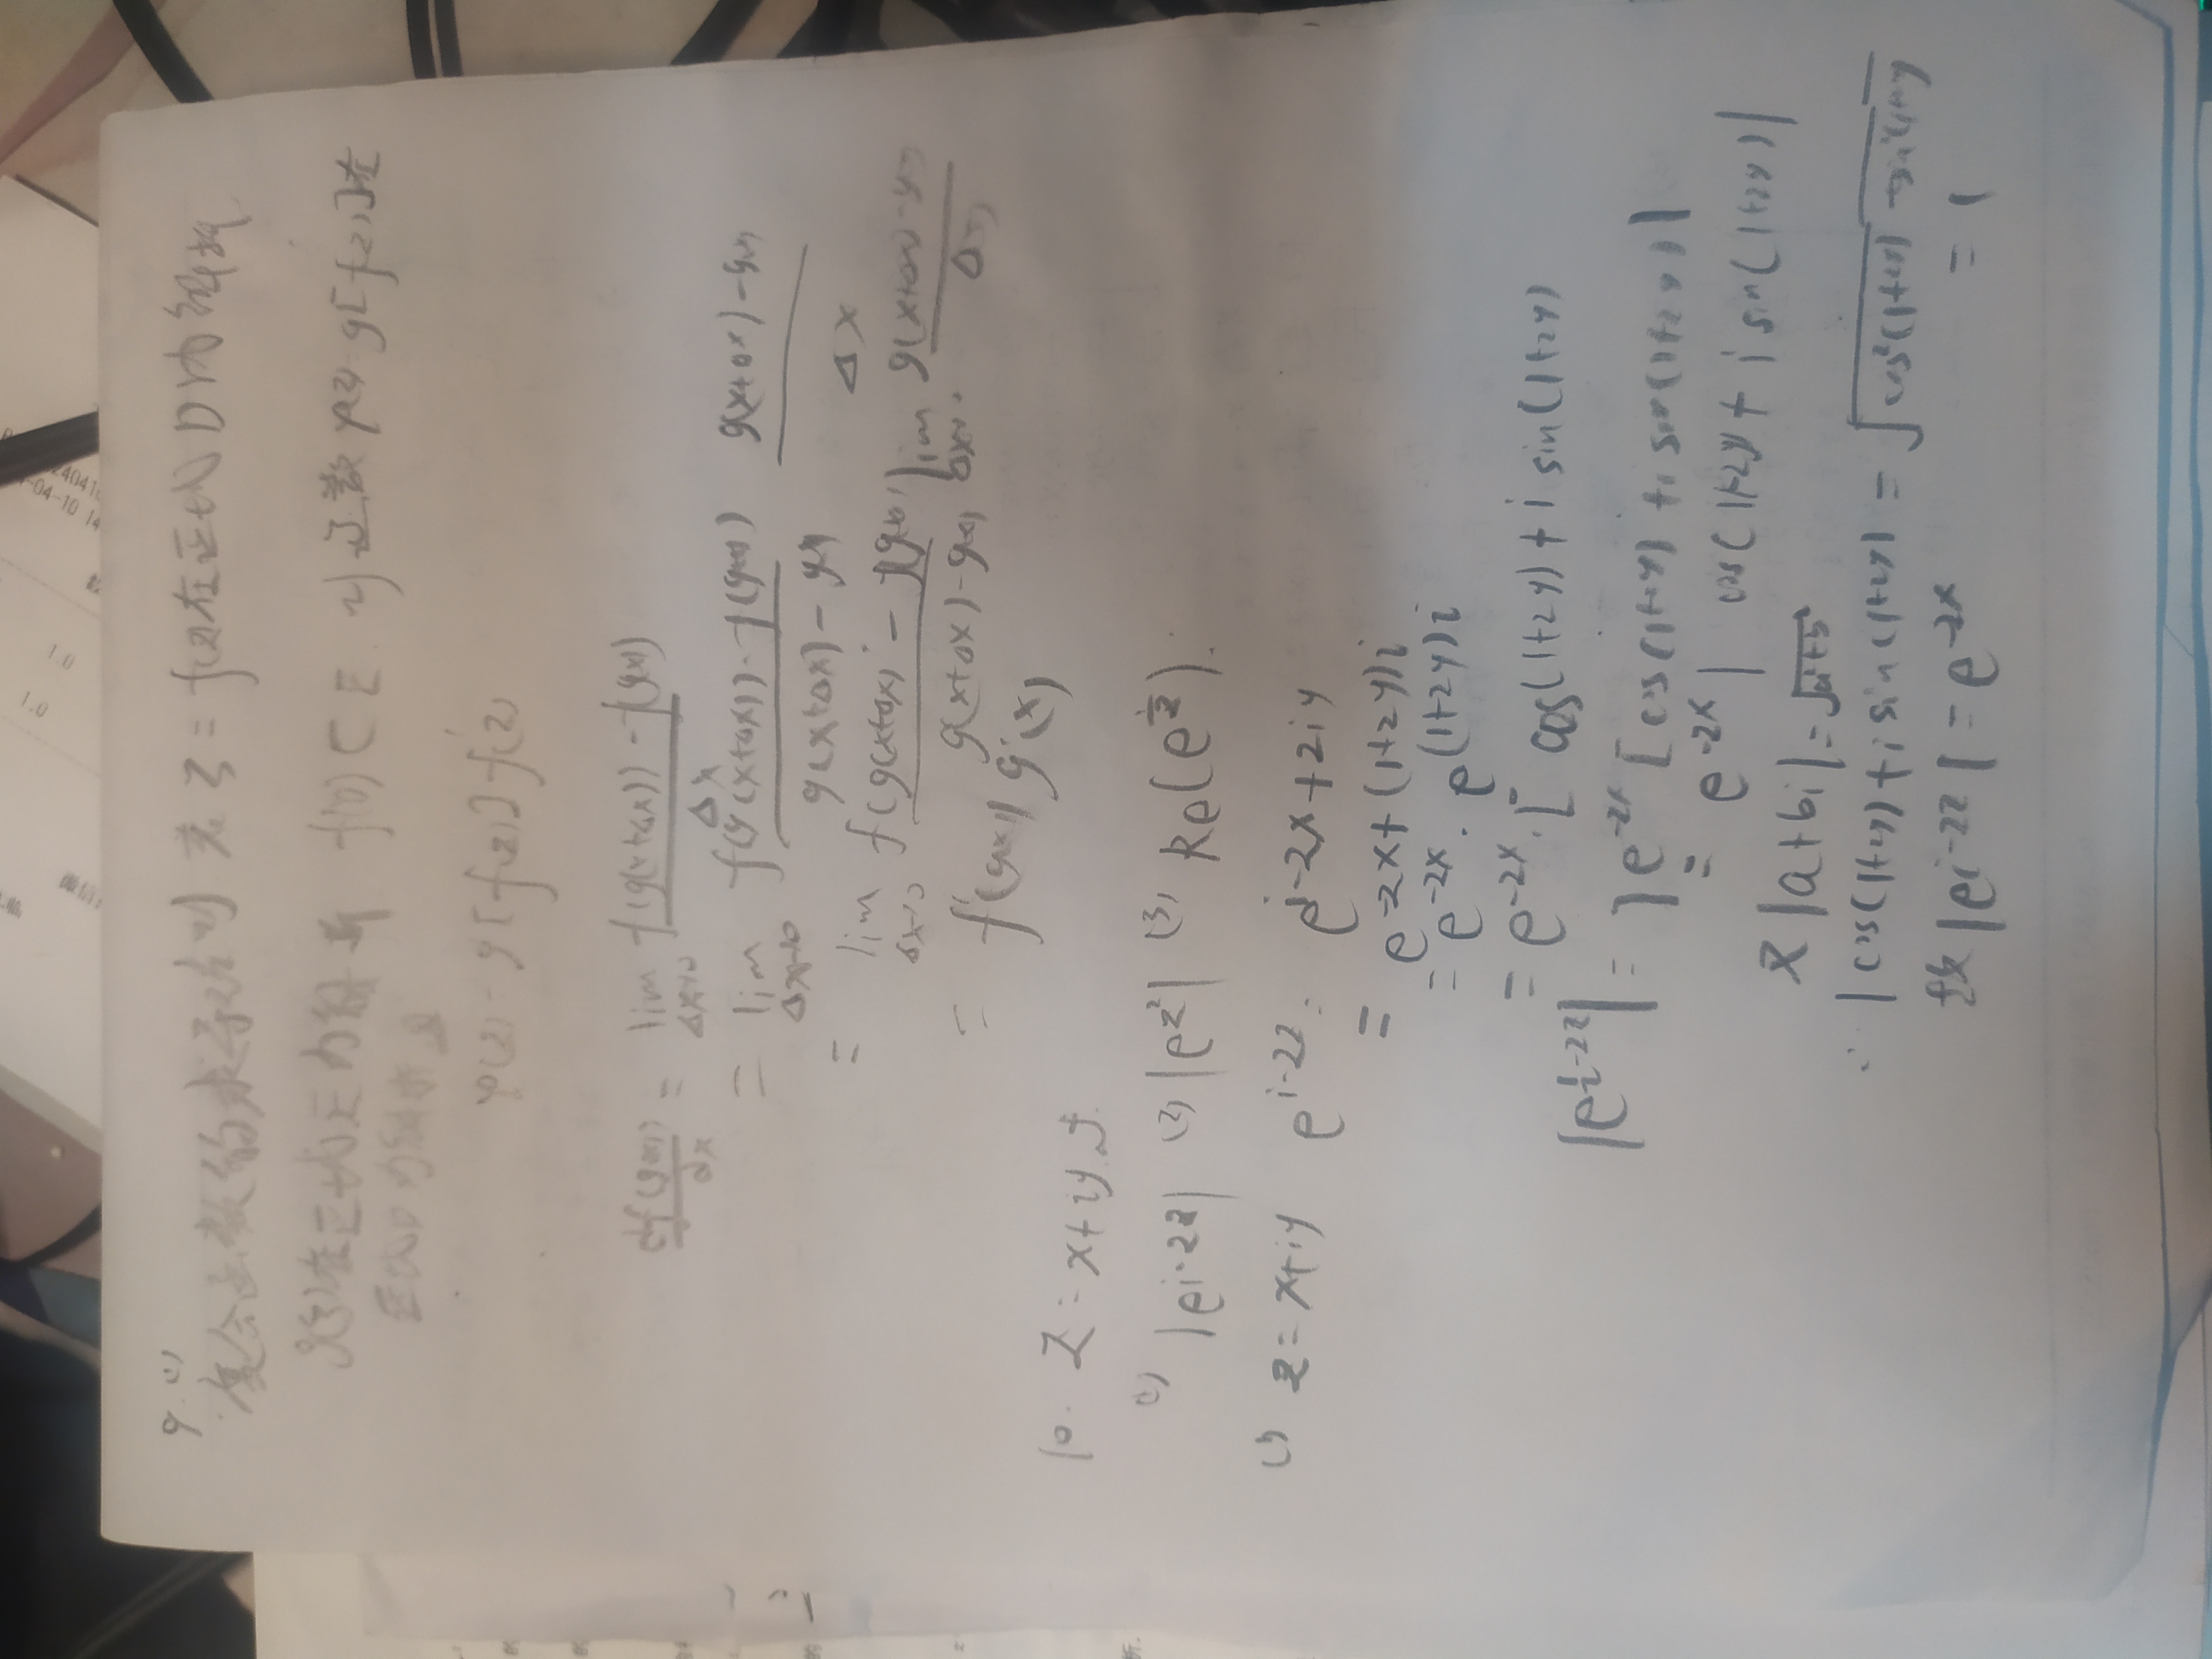 9.(1)
复合函数的求导法则 若ζ=f(z)在区域D内解析
g(ζ)在区域E内解析 f(D)⊂E 则函数φ(z) g[f(z)]在
区域D内解析且
φ(z) = g[f(z)]f'(z)
df(g(x))/dx = lim Δx→0 f(g(x+Δx)) - f(g(x)) / Δx
= lim Δx→0 f(g(x+Δx)) - f(g(x)) / g(x+Δx) - g(x) g(x+Δx) - g(x) / Δx
= lim Δx→0 f(g(x+Δx) - f(g(x)) / g(x+Δx) - g(x) lim Δx→0 g(x+Δx) - g(x) / Δx
= f'(g(x)) g'(x)
10. Z = x+iy.
(1) |e^{i-2z}| (2) |e^{z²}| (3) Re(e^{1/z}).
(1) z = x+iy e^{i-2z} = e^{i-2x+2iy}
= e^{-2x+(1+2y)i}
= e^{-2x} · e^{(1+2y)i}
= e^{-2x} · [ cos(1+2y) + i sin(1+2y)
|e^{i-2z}| = |e^{-2x} [cos(1+2y) + i sin(1+2y)|
= e^{-2x} | cos(1+2y) + i sin(1+2y)|
又 |a+bi| = √a²+b²
∴ |cos(1+2y) + i sin(1+2y) = √cos²(1+2y) + sin²(1+2y)
故 |e^{i-2z}| = e^{-2x} = 1